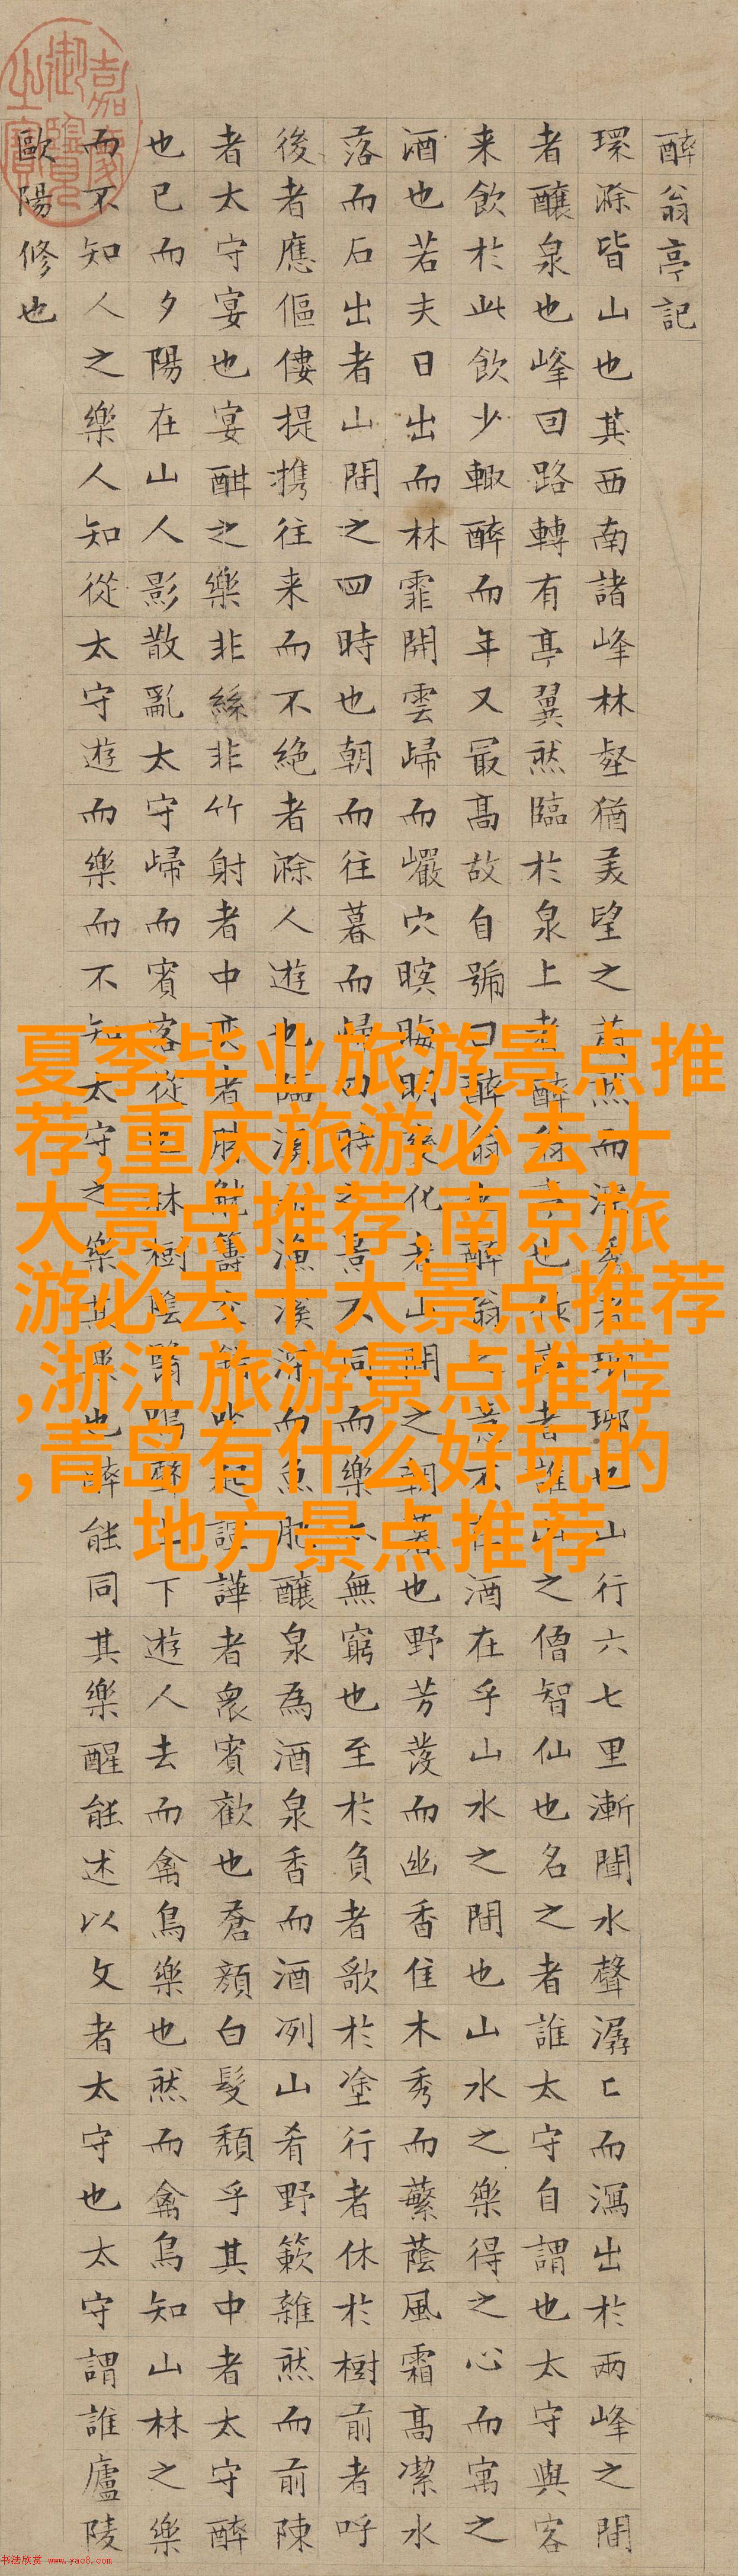 醉翁亭記
環滁皆山也其西南諸峰林壑猶美望之蔚然而深秀者瑯琊也山行六七里漸聞水聲潺〻而瀉出於兩峰之間
者釀泉也峰回路轉有亭翼然臨於泉上者醉翁亭也作亭者誰山之僧智仙也名之者誰太守自謂也太守與客
来飲於此飲少輒醉而年又最高故自號曰醉翁也醉翁之意不在酒在乎山水之間也山水之樂得之心而寓之
酒也若夫日出而林霏開雲歸而巖穴暝晦明變化者山間之朝暮也野芳發而幽香佳木秀而蘩蔭風霜高潔水
落而石出者山間之四時也朝而往暮而歸四時之景不同而樂亦無窮也至於負者歌於塗行者休於樹前者呼
後者應傴僂提攜往来而不絶者滁人遊也臨溪而漁溪深而魚肥釀泉為酒泉香而酒冽山肴野蔌雜然而前陳
者太守宴也宴酣之樂非絲非竹射者中奕者勝觥籌交錯坐起諠譁者衆賓歡也蒼顏白髮頹乎其中者太守醉
也已而夕陽在山人影散亂太守歸而賓客從也林樹陰翳鳴聲上下遊人去而禽鳥樂也然而禽鳥知山林之樂
而不知人之樂人知從太守遊而樂而不知太守之樂其樂也醉能同其樂醒能述以文者太守也太守謂誰廬陵
歐陽修也
嘉慶御覽之寶
夏季毕业旅游景点推
荐,重庆旅游必去十
大景点推荐,南京旅
游必去十大景点推荐
,浙江旅游景点推荐
,青岛有什么好玩的
地方景点推荐
书法欣赏 www.yac8.com